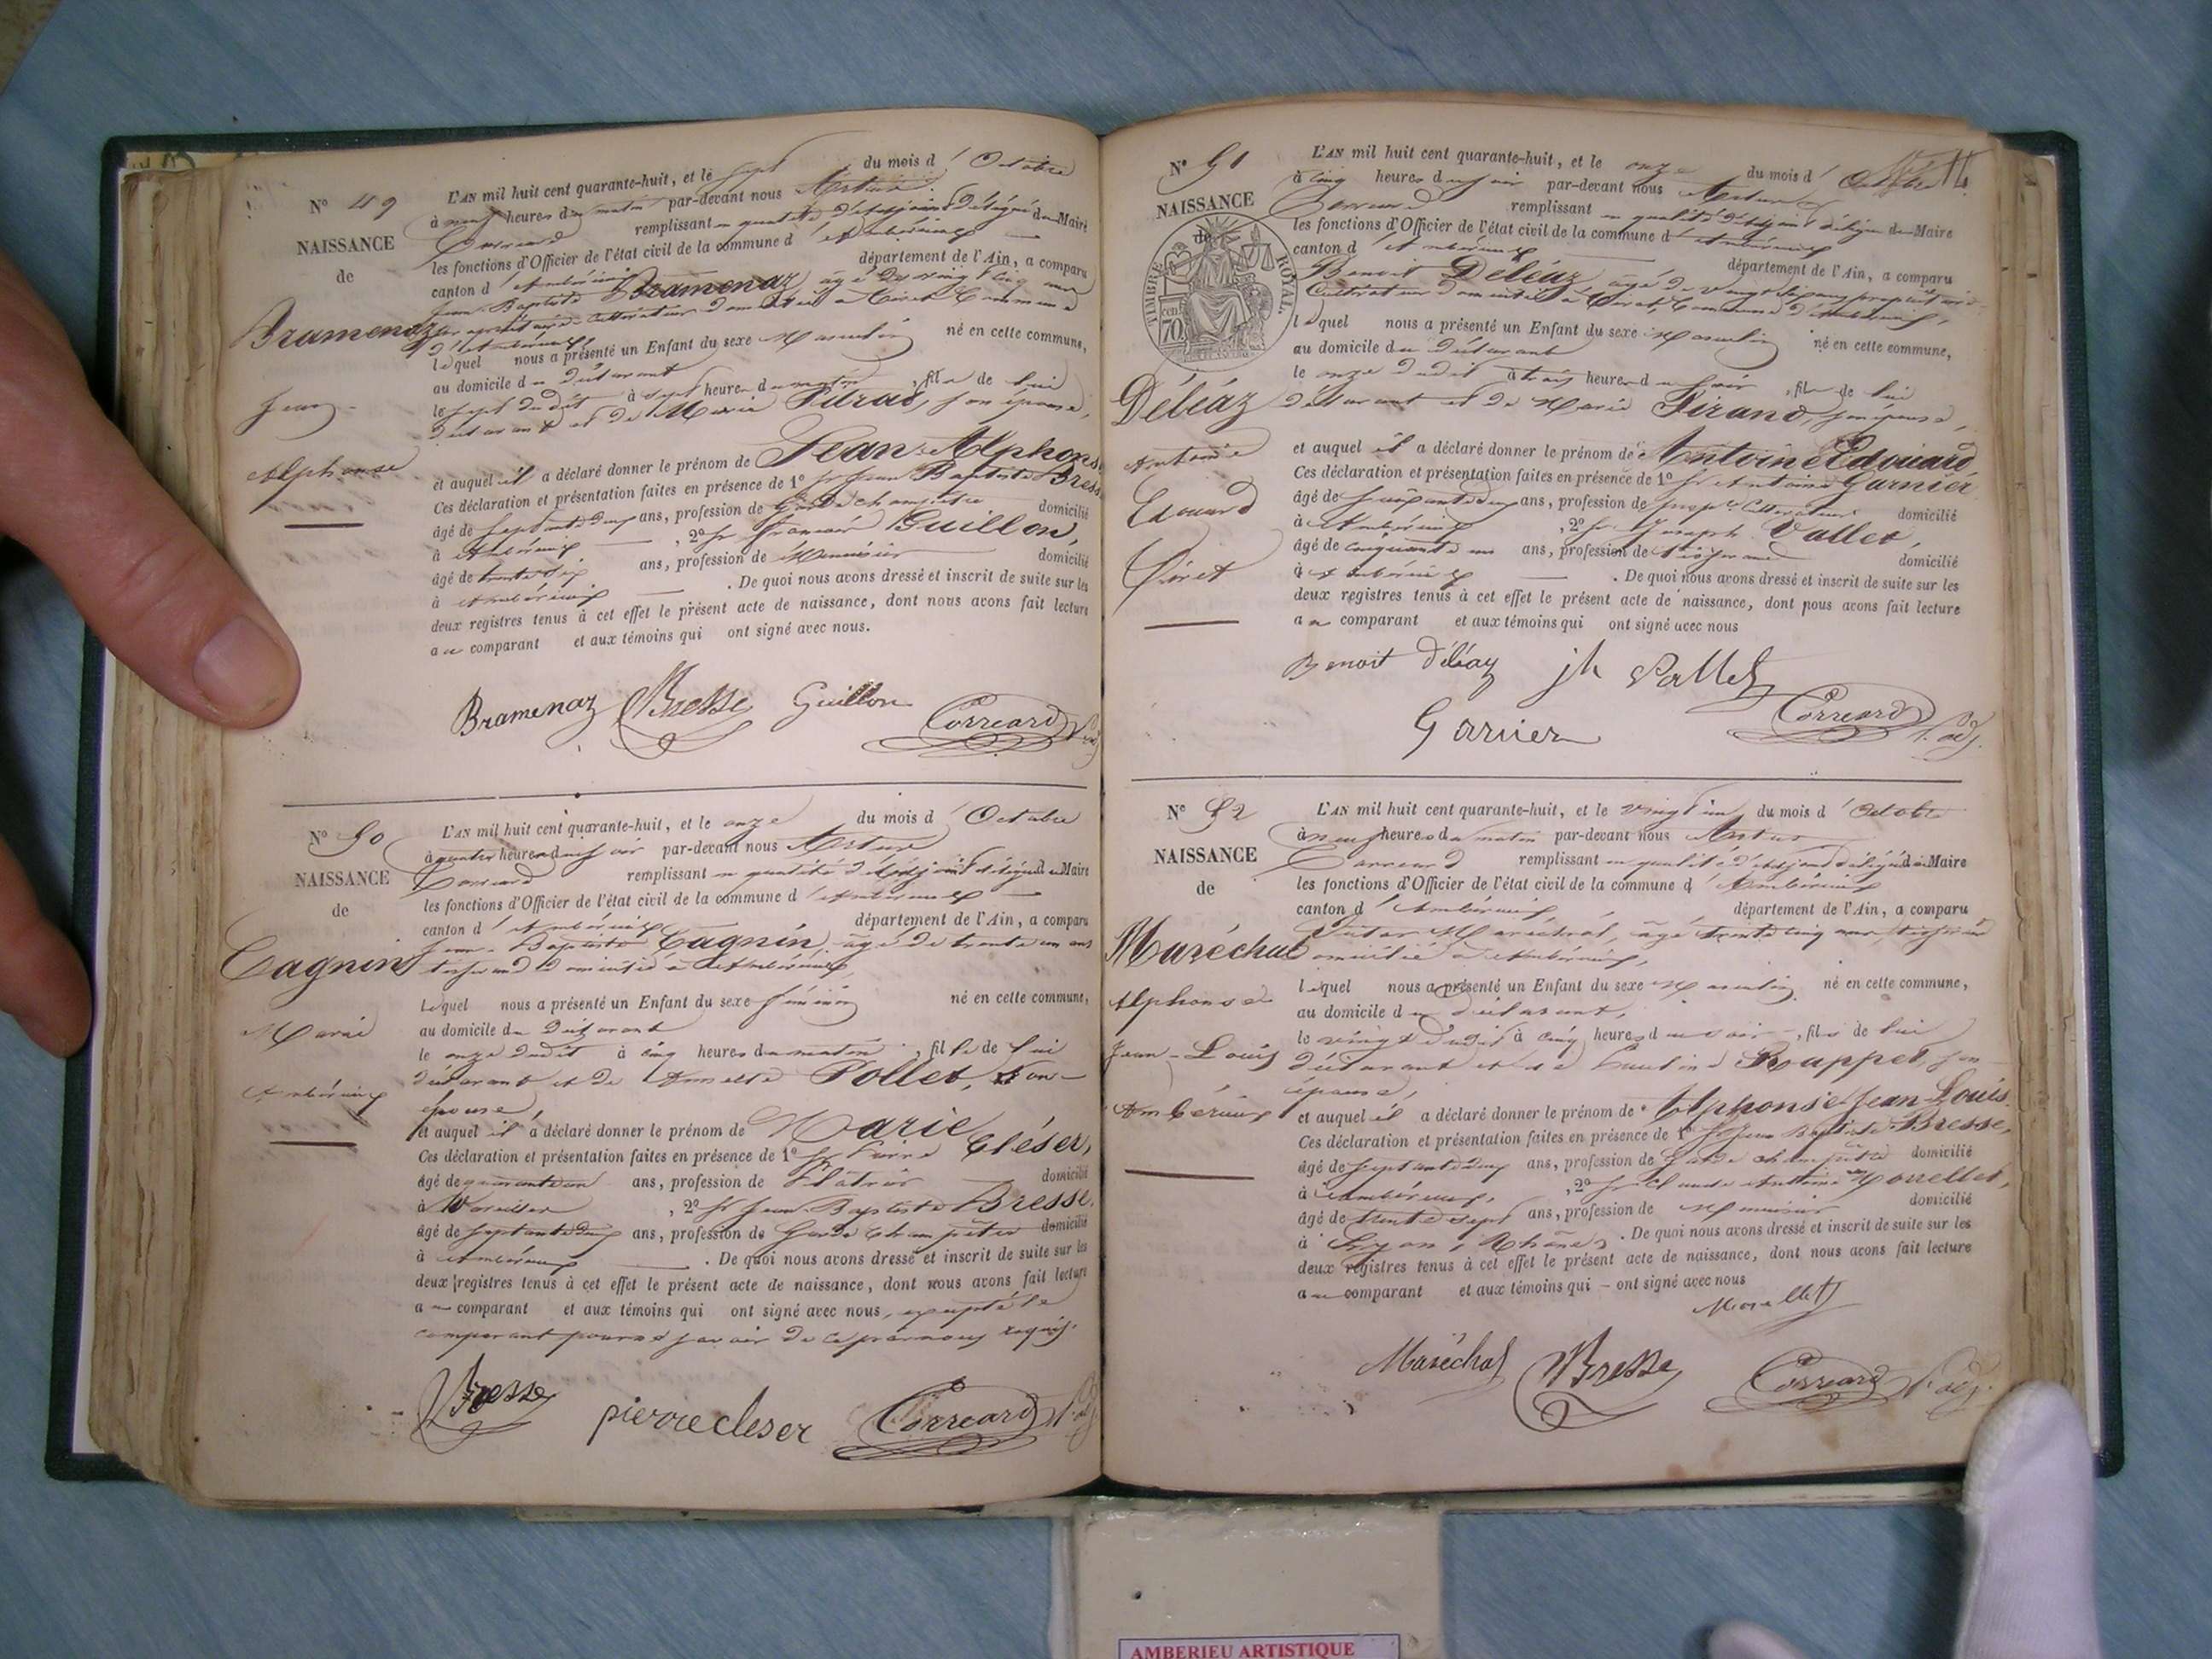 N° 49
NAISSANCE
de
Bramenaz
Jean
Alphonse
L'AN mil huit cent quarante-huit, et le sept du mois d'Octobre
à neuf heures du matin par-devant nous Artur
Correard remplissant en qualité d'adjoint délégué du Maire
les fonctions d'Officier de l'état civil de la commune d'Ambérieux
canton d'Ambérieux département de l'Ain, a comparu
Jean Baptiste Bramenaz âgé de vingt cinq ans
propriétaire cultivateur domicilié à Tiret Commune
d'Ambérieux
lequel nous a présenté un Enfant du sexe Masculin né en cette commune,
au domicile du déclarant
le sept dudit à sept heures du matin, fils de lui
déclarant et de Marie son épouse,
et auquel il a déclaré donner le prénom de Jean Alphonse
Ces déclaration et présentation faites en présence de 1° sr Jean Baptiste Bresse
âgé de septante deux ans, profession de Garde champêtre domicilié
à Ambérieux, 2° sr François Guillon,
âgé de trente six ans, profession de Menuisier domicilié
à Ambérieux. De quoi nous avons dressé et inscrit de suite sur les
deux registres tenus à cet effet le présent acte de naissance, dont nous avons fait lecture
au comparant et aux témoins qui ont signé avec nous.
Bramenaz Bresse Guillon Correard
N° 50
NAISSANCE
de
Cagnin
Marie
Ambérieux
L'AN mil huit cent quarante-huit, et le onze du mois d'Octobre
à quatre heures du soir par-devant nous Artur
Correard remplissant en qualité d'adjoint délégué du Maire
les fonctions d'Officier de l'état civil de la commune d'Ambérieux
canton d'Ambérieux département de l'Ain, a comparu
Jean-Baptiste Cagnin, âgé de trente un ans
tisserand domicilié à Ambérieux,
lequel nous a présenté un Enfant du sexe féminin né en cette commune,
au domicile du déclarant
le onze dudit à cinq heures du matin, fille de lui
déclarant et de Pollet, son
épouse,
et auquel il a déclaré donner le prénom de Marie
Ces déclaration et présentation faites en présence de 1° sr Pierre Cléser,
âgé de quarante un ans, profession de Plâtrier domicilié
à, 2° sr Jean-Baptiste Bresse,
âgé de septante deux ans, profession de Garde Champêtre domicilié
à Ambérieux. De quoi nous avons dressé et inscrit de suite sur les
deux registres tenus à cet effet le présent acte de naissance, dont nous avons fait lecture
au comparant et aux témoins qui ont signé avec nous, excepté le
comparant pour ne savoir de ce par nous requis.
Bresse pierre cleser Correard
N° 51
NAISSANCE
de
TIMBRE ROYAL
70
Déléaz
Antoine
Edouard
Tiret
L'AN mil huit cent quarante-huit, et le onze du mois d'Octobre
à cinq heures du soir par-devant nous Artur
Correard remplissant en qualité d'adjoint délégué du Maire
les fonctions d'Officier de l'état civil de la commune d'Ambérieux
canton d'Ambérieux département de l'Ain, a comparu
Benoit Déléaz âgé de vingt six ans propriétaire
Cultivateur domicilié à Tiret, Commune d'Ambérieux,
lequel nous a présenté un Enfant du sexe Masculin né en cette commune,
au domicile du déclarant
le onze dudit à trois heures du soir, fils de lui
déclarant et de Marie Firand, son épouse,
et auquel il a déclaré donner le prénom de Antoine Edouard
Ces déclaration et présentation faites en présence de 1° sr Antoine Garnier
âgé de soixante deux ans, profession de propre Cultivateur domicilié
à Ambérieux, 2° sr Joseph Vallet,
âgé de cinquante un ans, profession de tisserand domicilié
à Ambérieux. De quoi nous avons dressé et inscrit de suite sur les
deux registres tenus à cet effet le présent acte de naissance, dont nous avons fait lecture
au comparant et aux témoins qui ont signé avec nous
Benoit Déléaz jh Vallet
Garnier Correard adj.
N° 52
NAISSANCE
de
Maréchal
Alphonse
Jean-Louis
Ambérieux
L'AN mil huit cent quarante-huit, et le vingt un du mois d'Octobre
à neuf heures du matin par-devant nous Artur
Correard remplissant en qualité d'adjoint délégué du Maire
les fonctions d'Officier de l'état civil de la commune d'Ambérieux
canton d'Ambérieux, département de l'Ain, a comparu
Maréchal, âgé trente cinq ans, tisserand
domicilié à Ambérieux,
lequel nous a présenté un Enfant du sexe Masculin né en cette commune,
au domicile du déclarant,
le vingt dudit à cinq heures du soir, fils de lui
déclarant et de Rappet, son
épouse,
et auquel il a déclaré donner le prénom de Alphonse Jean Louis
Ces déclaration et présentation faites en présence de 1° sr Jean Baptiste Bresse,
âgé de septante deux ans, profession de garde champêtre domicilié
à Ambérieux, 2° sr Claude Antoine Morellet,
âgé de trente sept ans, profession de Menuisier domicilié
à Lyon, Rhône. De quoi nous avons dressé et inscrit de suite sur les
deux registres tenus à cet effet le présent acte de naissance, dont nous avons fait lecture
au comparant et aux témoins qui ont signé avec nous
Morellet
Maréchal Bresse Correard adj.
AMBERIEU ARTISTIQUE